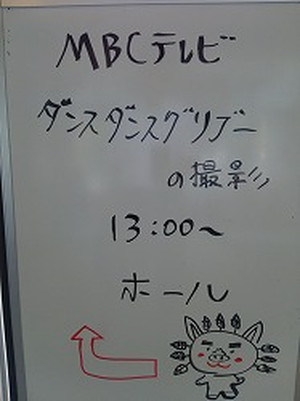 MBCテレビ
ダンスダンスグリブー
の撮影
13:00～
ホール